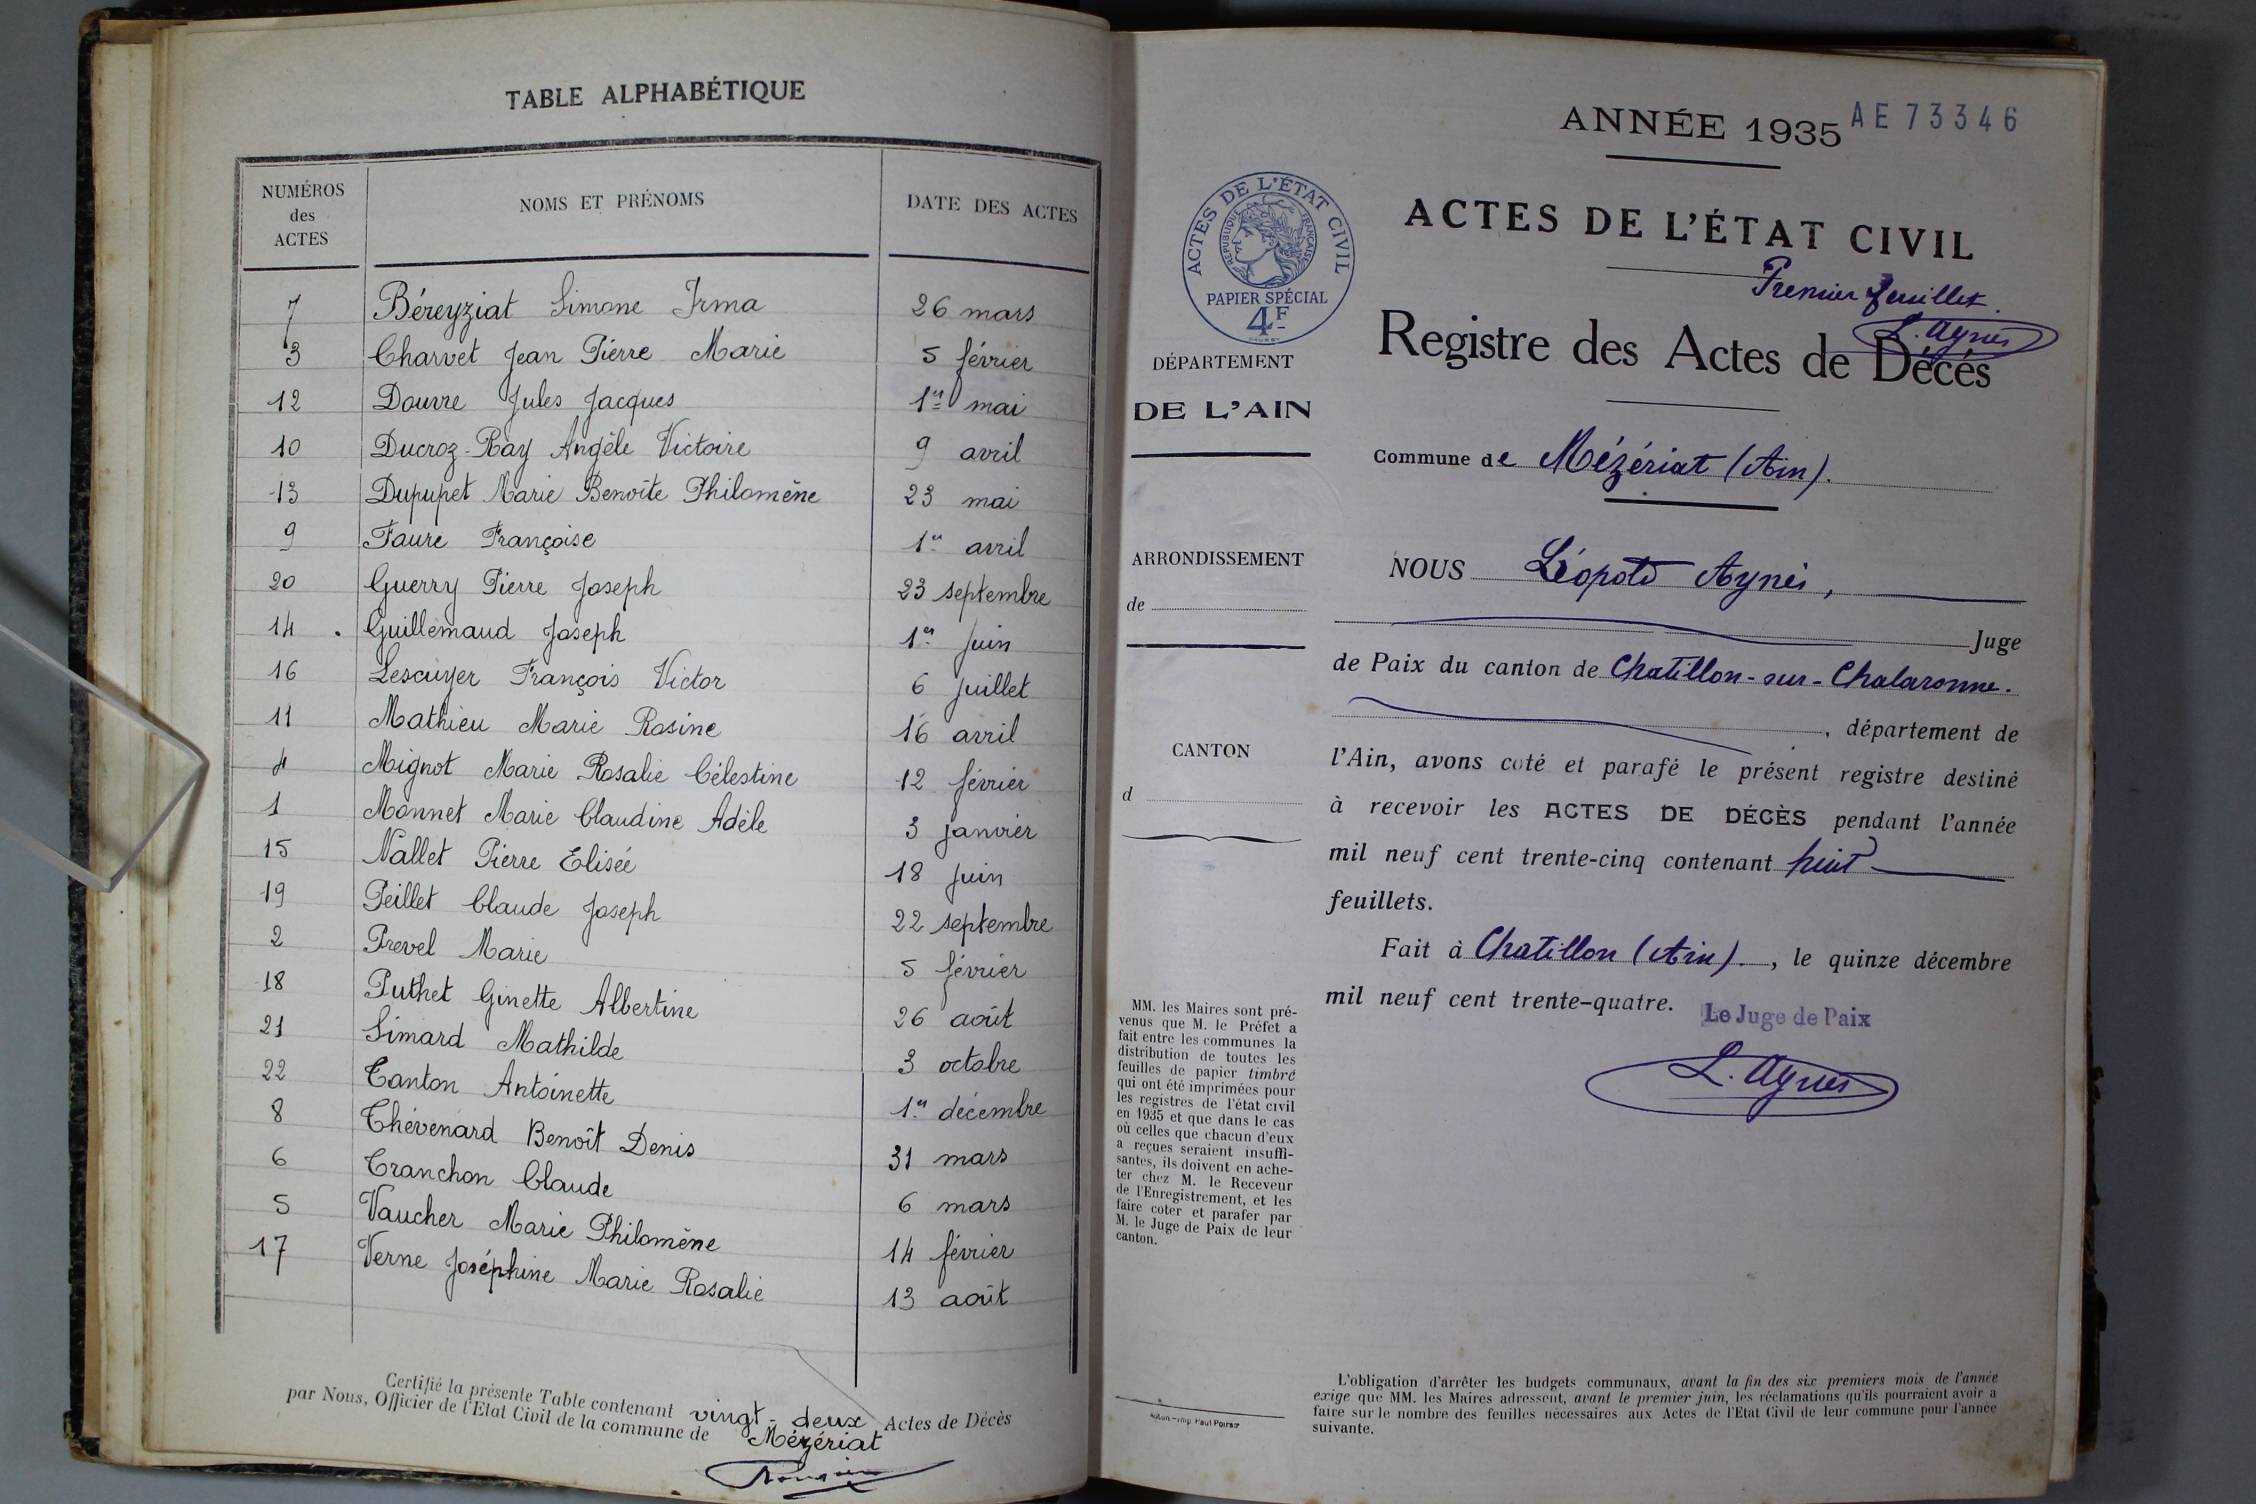 TABLE ALPHABÉTIQUE
NUMÉROS des ACTES NOMS ET PRÉNOMS DATE DES ACTES
7 Béreyziat Simone Irma 26 mars
3 Charvet Jean Pierre Marie 5 février
12 Douvre Jules Jacques 1er mai
10 Ducroz-Ray Angèle Victoire 9 avril
13 Dupupet Marie Benoîte Philomène 23 mai
9 Faure Françoise 1er avril
20 Guerry Pierre Joseph 23 septembre
14 Guillemaud Joseph 1er juin
16 Lescuyer François Victor 6 juillet
11 Mathieu Marie Rosine 16 avril
4 Mignot Marie Rosalie Célestine 12 février
1 Monnet Marie Claudine Adèle 3 janvier
15 Nallet Pierre Elisée 18 juin
19 Peillet Claude Joseph 22 septembre
2 Prevel Marie 5 février
18 Puthet Ginette Albertine 26 août
21 Simard Mathilde 3 octobre
22 Tanton Antoinette 1er décembre
8 Thévenard Benoît Denis 31 mars
6 Tranchon Claude 6 mars
5 Vaucher Marie Philomène 14 février
17 Verne Joséphine Marie Rosalie 13 août
Certifié la présente Table contenant vingt-deux Actes de Décès
par Nous, Officier de l'Etat Civil de la commune de Mézériat
ANNÉE 1935 AE 73346
ACTES DE L'ÉTAT CIVIL
RÉPUBLIQUE FRANÇAISE
PAPIER SPÉCIAL
4F
DÉPARTEMENT
DE L'AIN
ARRONDISSEMENT
de
CANTON
d
MM. les Maires sont pré-
venus que M. le Préfet a
fait entre les communes la
distribution de toutes les
feuilles de papier timbré
qui ont été imprimées pour
les registres de l'état civil
en 1935 et que dans le cas
où celles que chacun d'eux
a reçues seraient insuffi-
santes, ils doivent en ache-
ter chez M. le Receveur
de l'Enregistrement, et les
faire coter et parafer par
M. le Juge de Paix de leur
canton.
ACTES DE L'ÉTAT CIVIL
Premier feuillet.
L. Aynès
Registre des Actes de Décès
Commune de Mézériat (Ain).
NOUS Léopold Aynès,
Juge
de Paix du canton de Chatillon-sur-Chalaronne.
, département de
l'Ain, avons coté et parafé le présent registre destiné
à recevoir les ACTES DE DÉCÈS pendant l'année
mil neuf cent trente-cinq contenant huit
feuillets.
Fait à Chatillon (Ain)., le quinze décembre
mil neuf cent trente-quatre. Le Juge de Paix
L. Aynès
L'obligation d'arrêter les budgets communaux, avant la fin des six premiers mois de l'année
exige que MM. les Maires adressent, avant le premier juin, les réclamations qu'ils pourraient avoir à
faire sur le nombre des feuilles nécessaires aux Actes de l'Etat Civil de leur commune pour l'année
suivante.